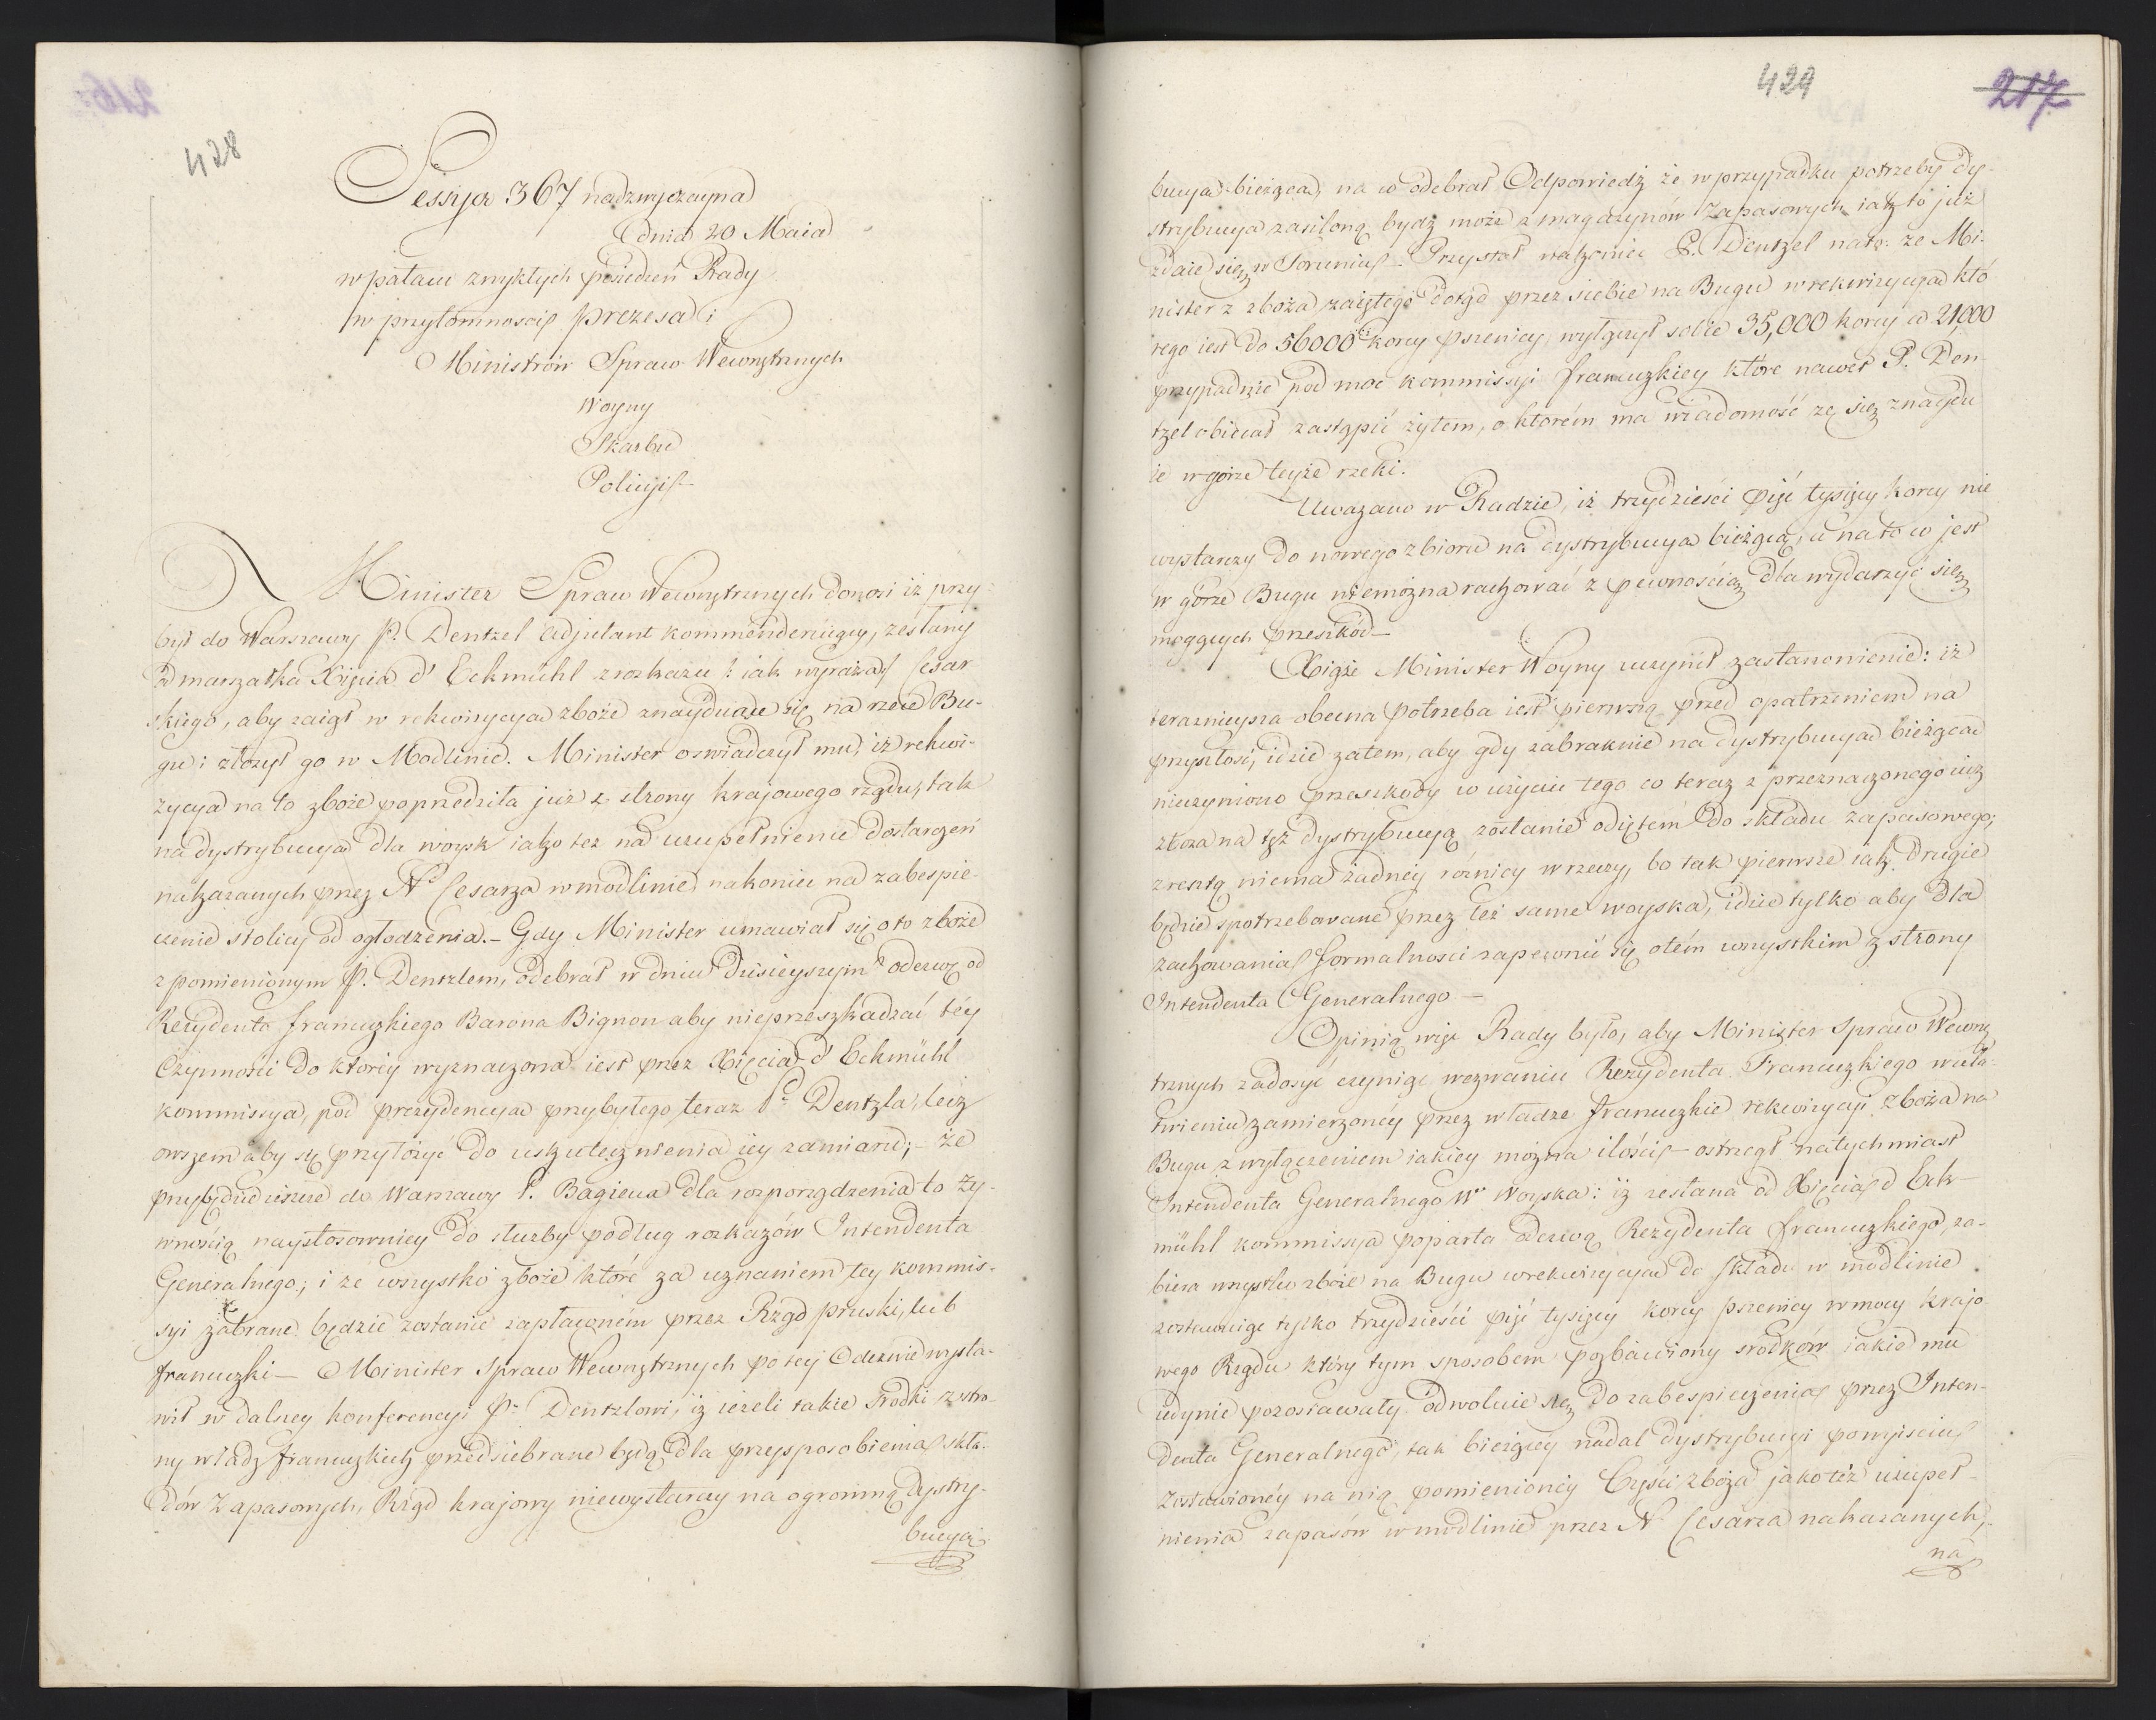 428
Sessya 367 nadzwyczayna
dnia 20 Maia
w pałacu zwykłych posiedzeń Rady
w przytomności prezesa i
Ministrów Spraw Wewnętrznych
Woyny
Skarbu
Policyi
Minister Spraw Wewnętrznych donosi iż przy-
był do Warszawy P. Dentzel Adjutant kommenderuiący, zesłany
od marszałka Xięcia d'Eckmühl z rozkazu : iak wyraża Cesar-
skiego, aby zaiął w rekwizycyą zboże znayduiące się na rzece Bu-
gu i złożył go w Modlinie. Minister oswiadczył mu, iż rekwi-
zycya na to zboże poprzedziła już z strony krajowego rządu, tak
na dystrybucyą dla woysk iako też na uzupełnienie dostarczeń
nakazanych przez N. Cesarza w modlinie nakoniec na zabespie-
czenie stolicy od ogłodzenia. – Gdy Minister umawiał się o to zboże
z pomienionym P. Dentzlem, odebrał w dniu dzisieyszym odezwę od
Rezydenta francuzkiego Barona Bignon aby nieprzeszkadzać téy
Czynności do ktorey wyznaczona iest przez Xięcia d'Eckmühl
kommissya, pod prezydencyą przybyłego teraz P. Dentzla, lecz
owszem aby się przyłożyć do uskutecznienia iey zamiaru; – że
przybędzie ieszcze do Warszawy P. Bagieux dla rozporządzenia tą ży-
wnością naystosowniey do służby podług rozkazów Intendenta
Generalnego; i że wszystko zboże które za uznaniem tey kommis-
syi zabrane będzie zostanie zapłaconém przez Rząd pruski, lub
francuzki – Minister Spraw Wewnętrznych po tey Odezwie wysta-
wił w dalney konferencyi P. Dentzlowi, iż ieżeli takie środki z stro-
ny władz francuzkich przedsiebrane będą dla przysposobienia skła-
dów Zapasowych, Rząd krajowy niewystarczy na ogromną dystry-
bucyą
429
217
bucyą bieżącą, na co odebrał Odpowiedź że w przypadku potrzeby dy-
strybucya zasiloną bydź może z magazynów Zapasowych iak to już
zdaie się w Toruniu – Przystał nakoniec P. Dentzel na to: że Mi-
nister z zboża zaiętego dotąd przez siebie na Bugu w rekwizycyą któ-
rego iest do 56000 korcy pszenicy, wyłączył sobie 35,000 korcy a 21,000
przypadnie pod moc kommissyi francuzkiey które nawet P. Den-
tzel obiecał zastąpić żytem, o ktorém ma wiadomość że się znaydu
ie w górze teyże rzeki.
Uważano w Radzie, iż trzydzieści pięć tysięcy korcy nie
wystarczy do nowego zbioru na dystrybucyą bieżącą, a na to co jest
w górze Bugu niemożna rachować z pewnością dla wydarzyć się
mogących przeszkód –
Xiąże Minister Woyny uczynił zastanowienie: iż
teraznieysza obecna potrzeba iest pierwszą przed opatrzeniem na
przyszłość, idzie zatem, aby gdy zabraknie na dystrybucyą bieżącą
nieczyniono przeszkody w użyciu tego co teraz z przeznaczonego iuż
zboża na tęż dystrybucyą zostanie odiętém do składu zapasowego;
zresztą niema żadney różnicy w rzeczy, bo tak pierwsze iak drugie
będzie spotrzebowane przez też same woyska, idzie tylko aby dla
zachowania formalności zapewnić się otém wszystkim z strony
Intendenta Generalnego –
Opinią więc Rady było, aby Minister Spraw Wewnę
trznych zadosyć czyniąc wezwaniu Rezydenta Francuzkiego w uła-
twieniu zamierzoney przez władze francuzkie rekwizycyi zboża na
Bugu z wyłączeniem iakiey można ilości – ostrzegł natychmiast
Intendenta Generalnego W. Woyska: iż zesłana od Xięcia d'Eck-
mühl kommissya poparta odezwą Rezydenta francuzkiego, za-
biera wszystko zboże na Bugu w rekwizycyą do Składu w modlinie
zostawuiąc tylko trzydzieści pięć tysięcy korcy pszenicy w mocy krajo
wego Rządu który tym sposobem pozbawiony srodków iakie mu
iedynie pozostawały odwołuie się do zabespieczenia przez Inten-
denta Generalnego, tak bieżącey nadal dystrybucyi po wyiściu
Zostawioney na nią pomienioney Części zboża jako też uzupeł-
nienia zapasów w modlinie przez N. Cesarza nakazanych,
na